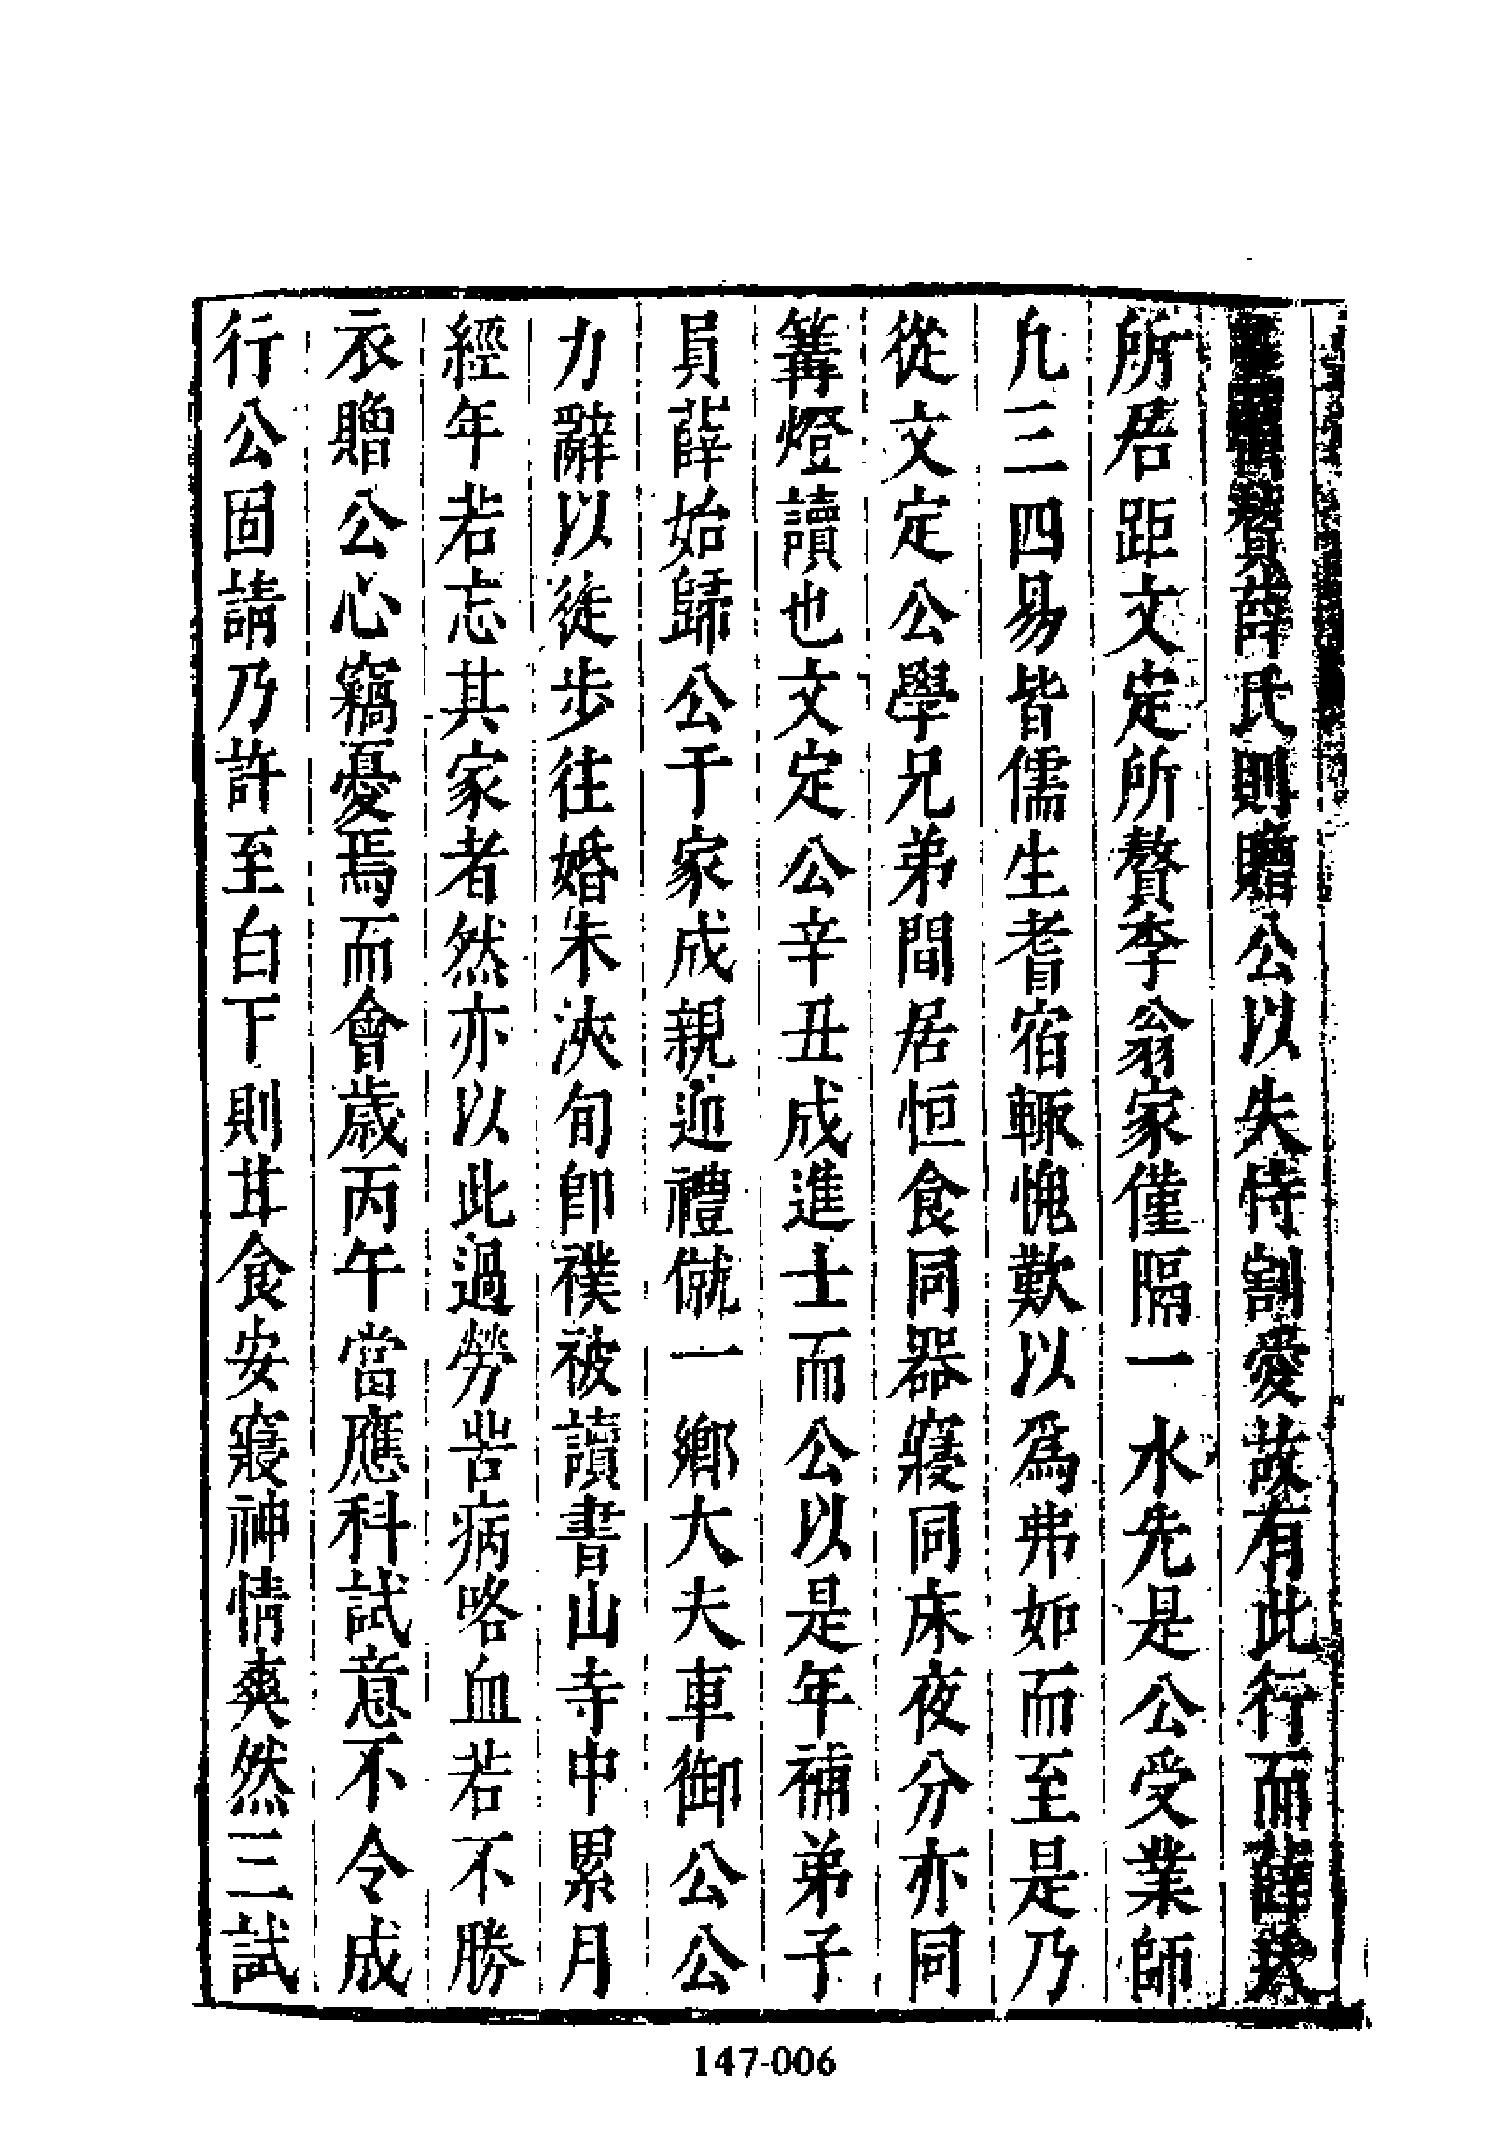 贅薛氏則贈公以失恃割愛故有此行而薛
所居距文定所贅李翁家僅隔一水先是公受業師
凢三四易皆儒生耆宿輒愧歎以爲弗如而至是乃
從文定公學兄弟間居恒食同器寢同床夜分亦同
篝燈讀也文定公辛丑成進士而公以是年補弟子
員薛始歸公于家成親迎禮僦一鄉大夫車御公公
力辭以徒步往婚未浹旬卽襆被讀書山寺中累月
經年若忘其家者然亦以此過勞苦病咯血若不勝
衣贈公心竊憂焉而會歲丙午當應科試意不令成
行公固請乃許至白下則甘食安寢神情爽然三試
147-006